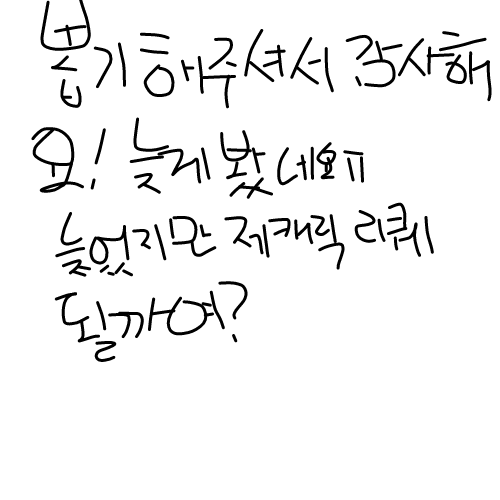 봅기해주셔서 감사해
요! 늦게 봤네요ㅠ
늦었지만 제캐릭 리퀘
될까여?